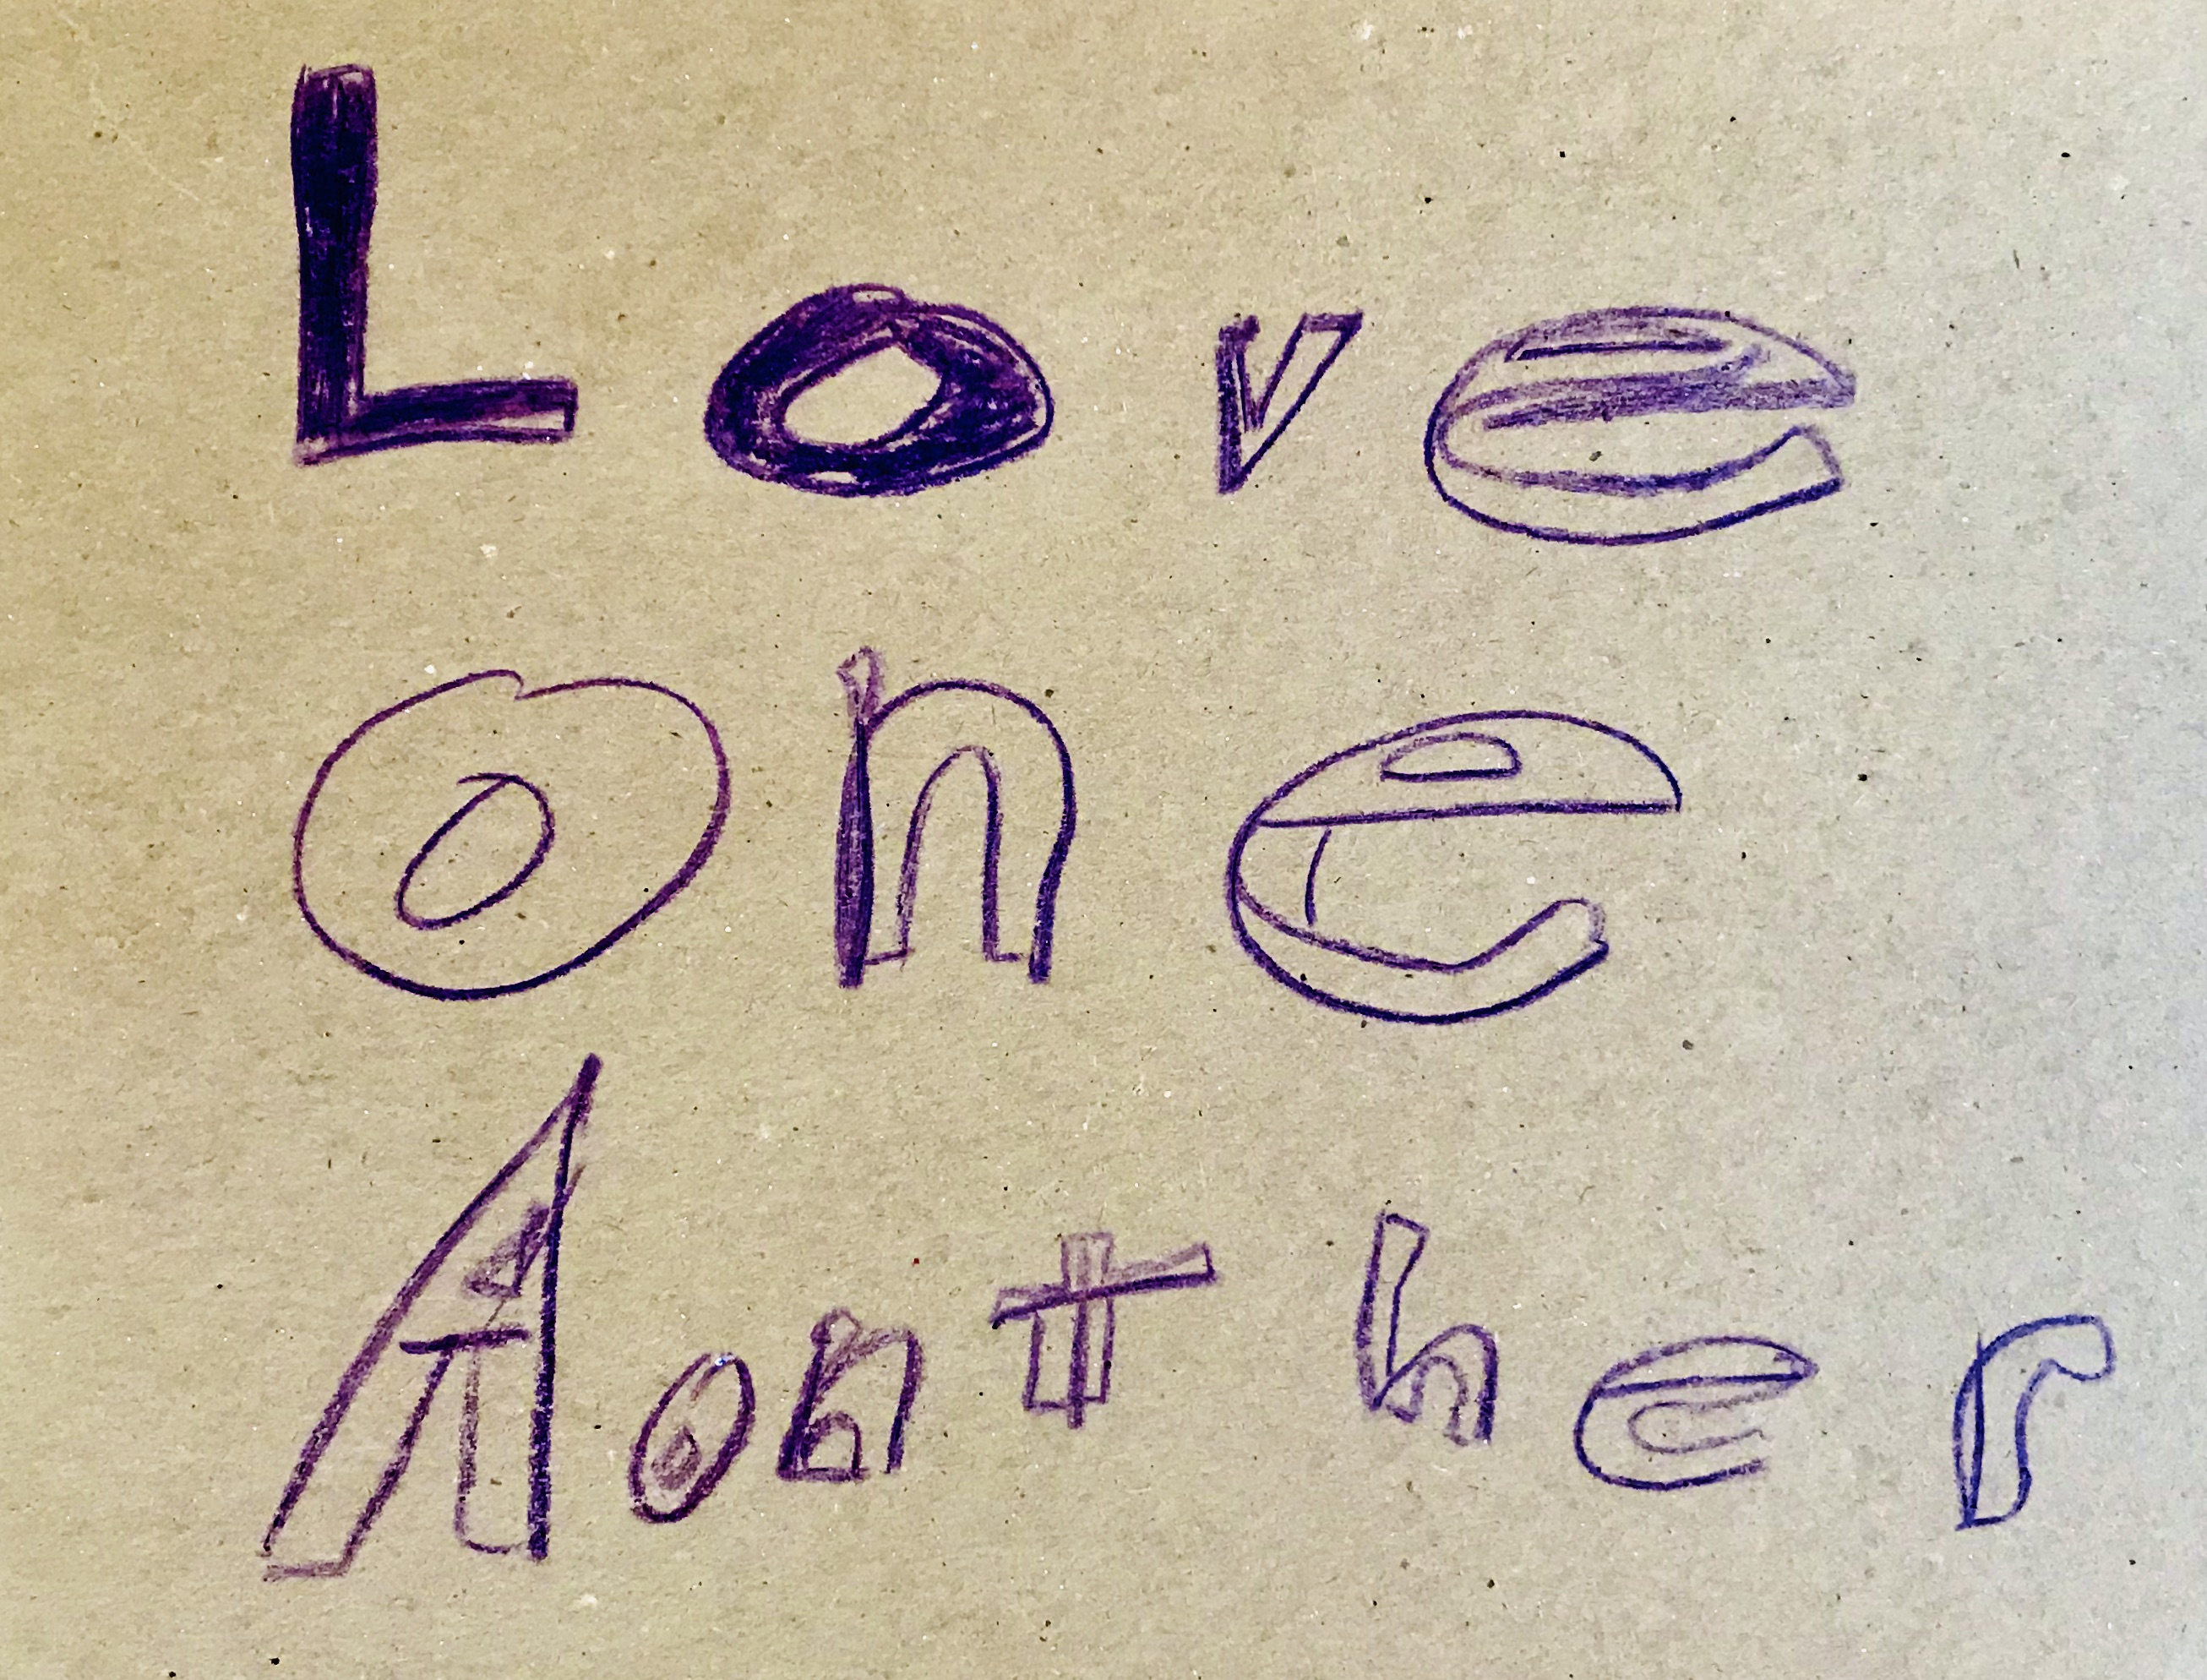 Love
one
Aonther